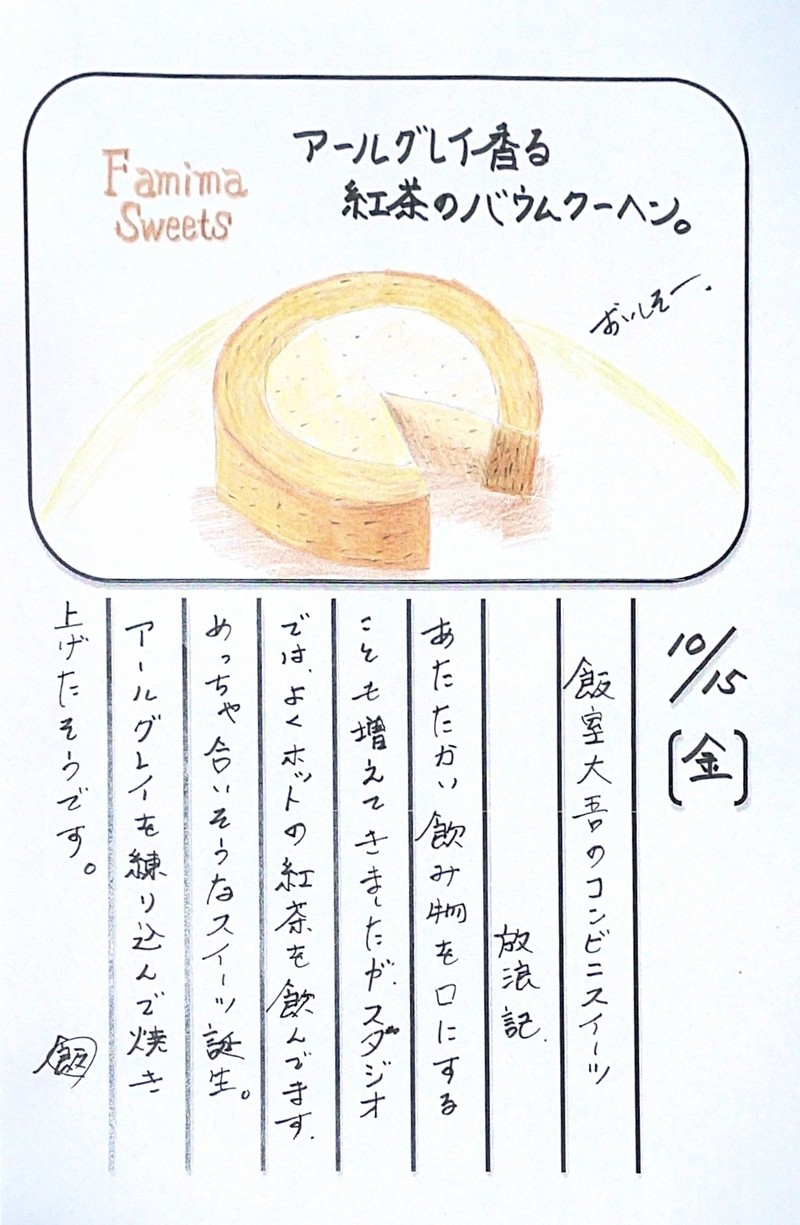 Famima
Sweets
アールグレイ香る
紅茶のバウムクーヘン。
おいしそー.
10/15
[金]
飯室大吾のコンビニスイーツ
放浪記.
あたたかい飲み物を口にする
ことも増えてきましたが、スタジオ
では、よくホットの紅茶を飲んでます.
めっちゃ合いそうなスイーツ誕生。
アールグレイを練り込んで焼き
上げたそうです。
飯